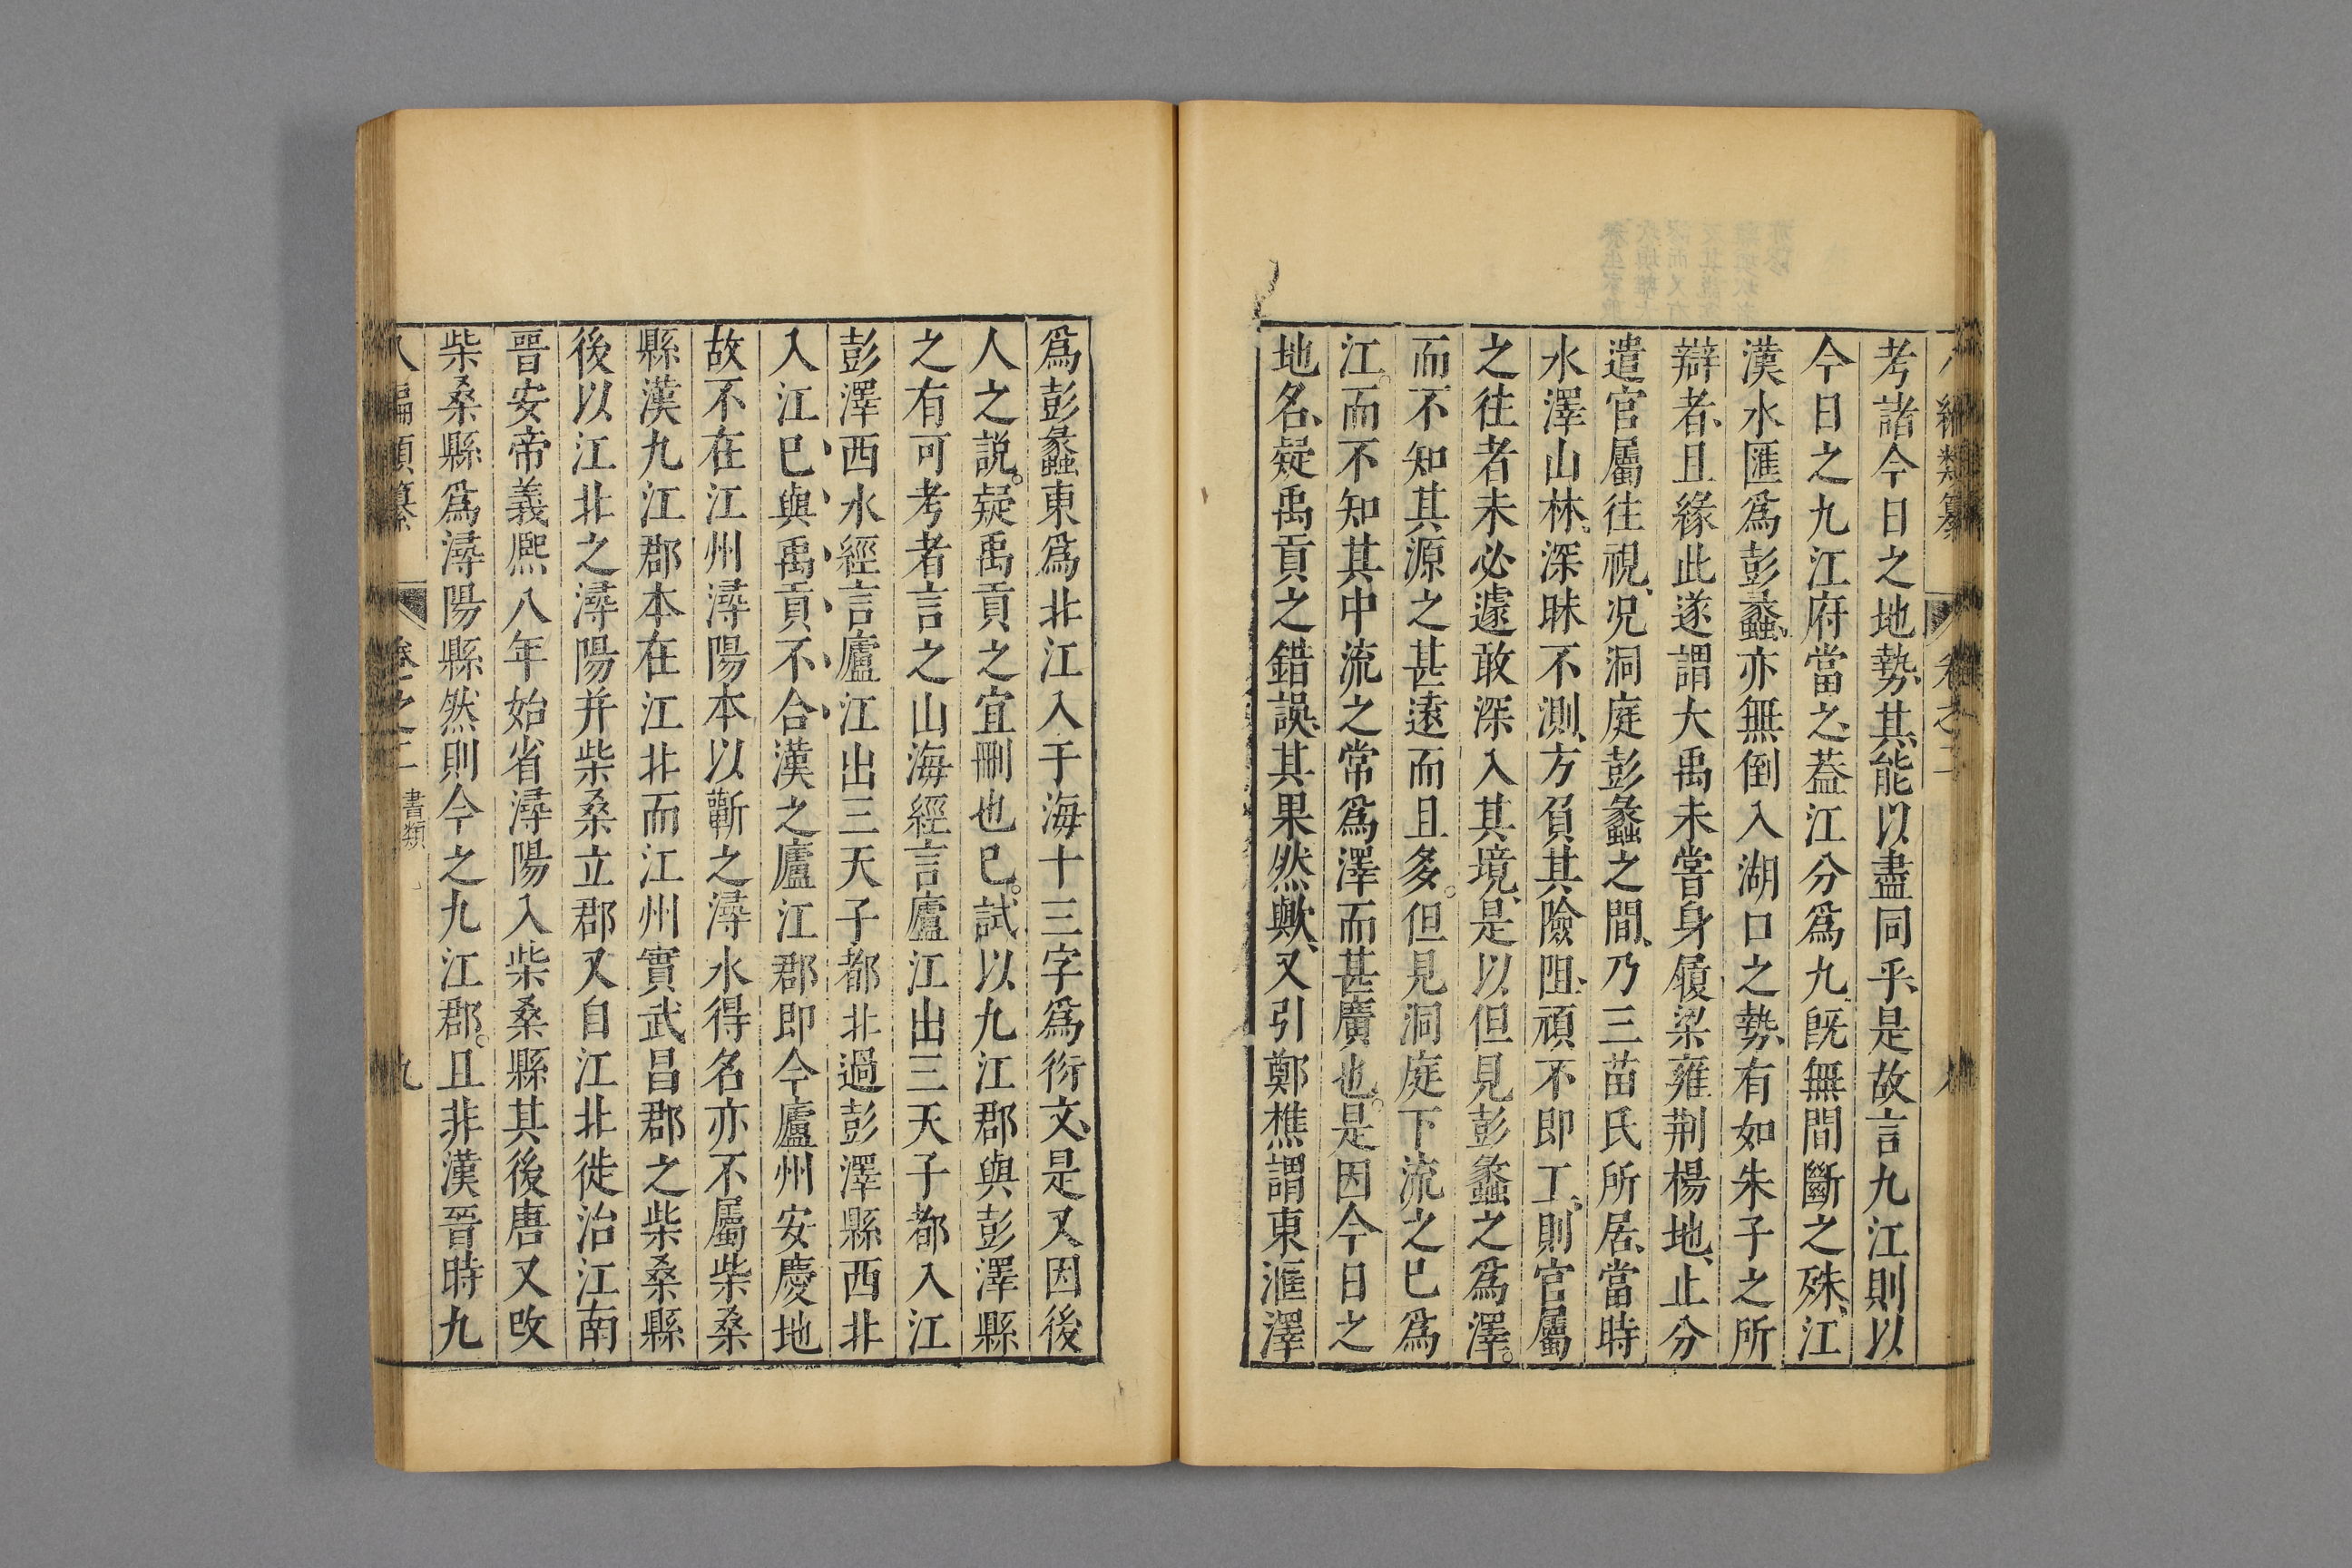 考諸今日之地勢其能以盡同乎是故言九江則以
今日之九江府當之蓋江分爲九旣無間斷之殊江
漢水匯爲彭蠡亦無倒入湖口之勢有如朱子之所
辯者且緣此遂謂大禹未嘗身履梁雍荆楊地止分
遣官屬往視况洞庭彭蠡之間乃三苗氏所居當時
水澤山林深昧不測方負其險阻頑不即工則官屬
之往者未必遽敢深入其境是以但見彭蠡之爲澤
而不知其源之甚遠而且多但見洞庭下流之已爲
江而不知其中流之常爲澤而甚廣也是因今日之
地名疑禹貢之錯誤其果然歟又引鄭樵謂東滙澤
爲彭蠡東爲北江入于海十三字爲衍文是又因後
人之說疑禹貢之宜刪也已試以九江郡與彭澤縣
之有可考者言之山海經言廬江出三天子都入江
彭澤西水經言廬江出三天子都北過彭澤縣西北
入江已與禹貢不合漢之廬江郡即今廬州安慶地
故不在江州潯陽本以蘄之潯水得名亦不屬柴桑
縣漢九江郡本在江北而江州實武昌郡之柴桑縣
後以江北之潯陽并柴桑立郡又自江北徙治江南
晉安帝義熙八年始省潯陽入柴桑縣其後唐又改
柴桑縣爲潯陽縣然則今之九江郡且非漢晉時九
八編類纂 卷之二 書類 九